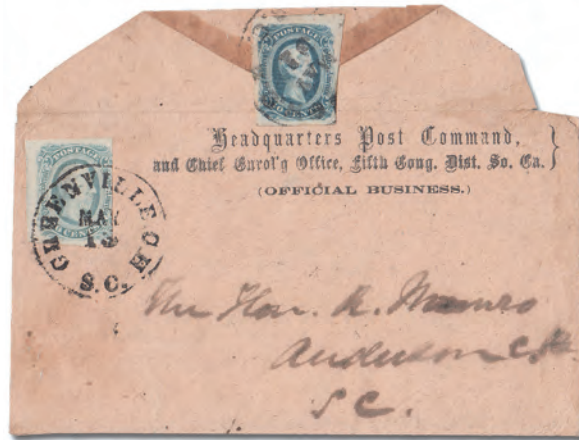 POSTAGE
Headquarters Post Command,
and Chief Enrol'g Office, Fifth Cong. Dist. So. Ca.
(OFFICIAL BUSINESS.)
POSTAGE
CENTS
GREENVILLE C H
MAY
13
S.C.
The Hon. R. Munro
Anderson C.H.
S C.